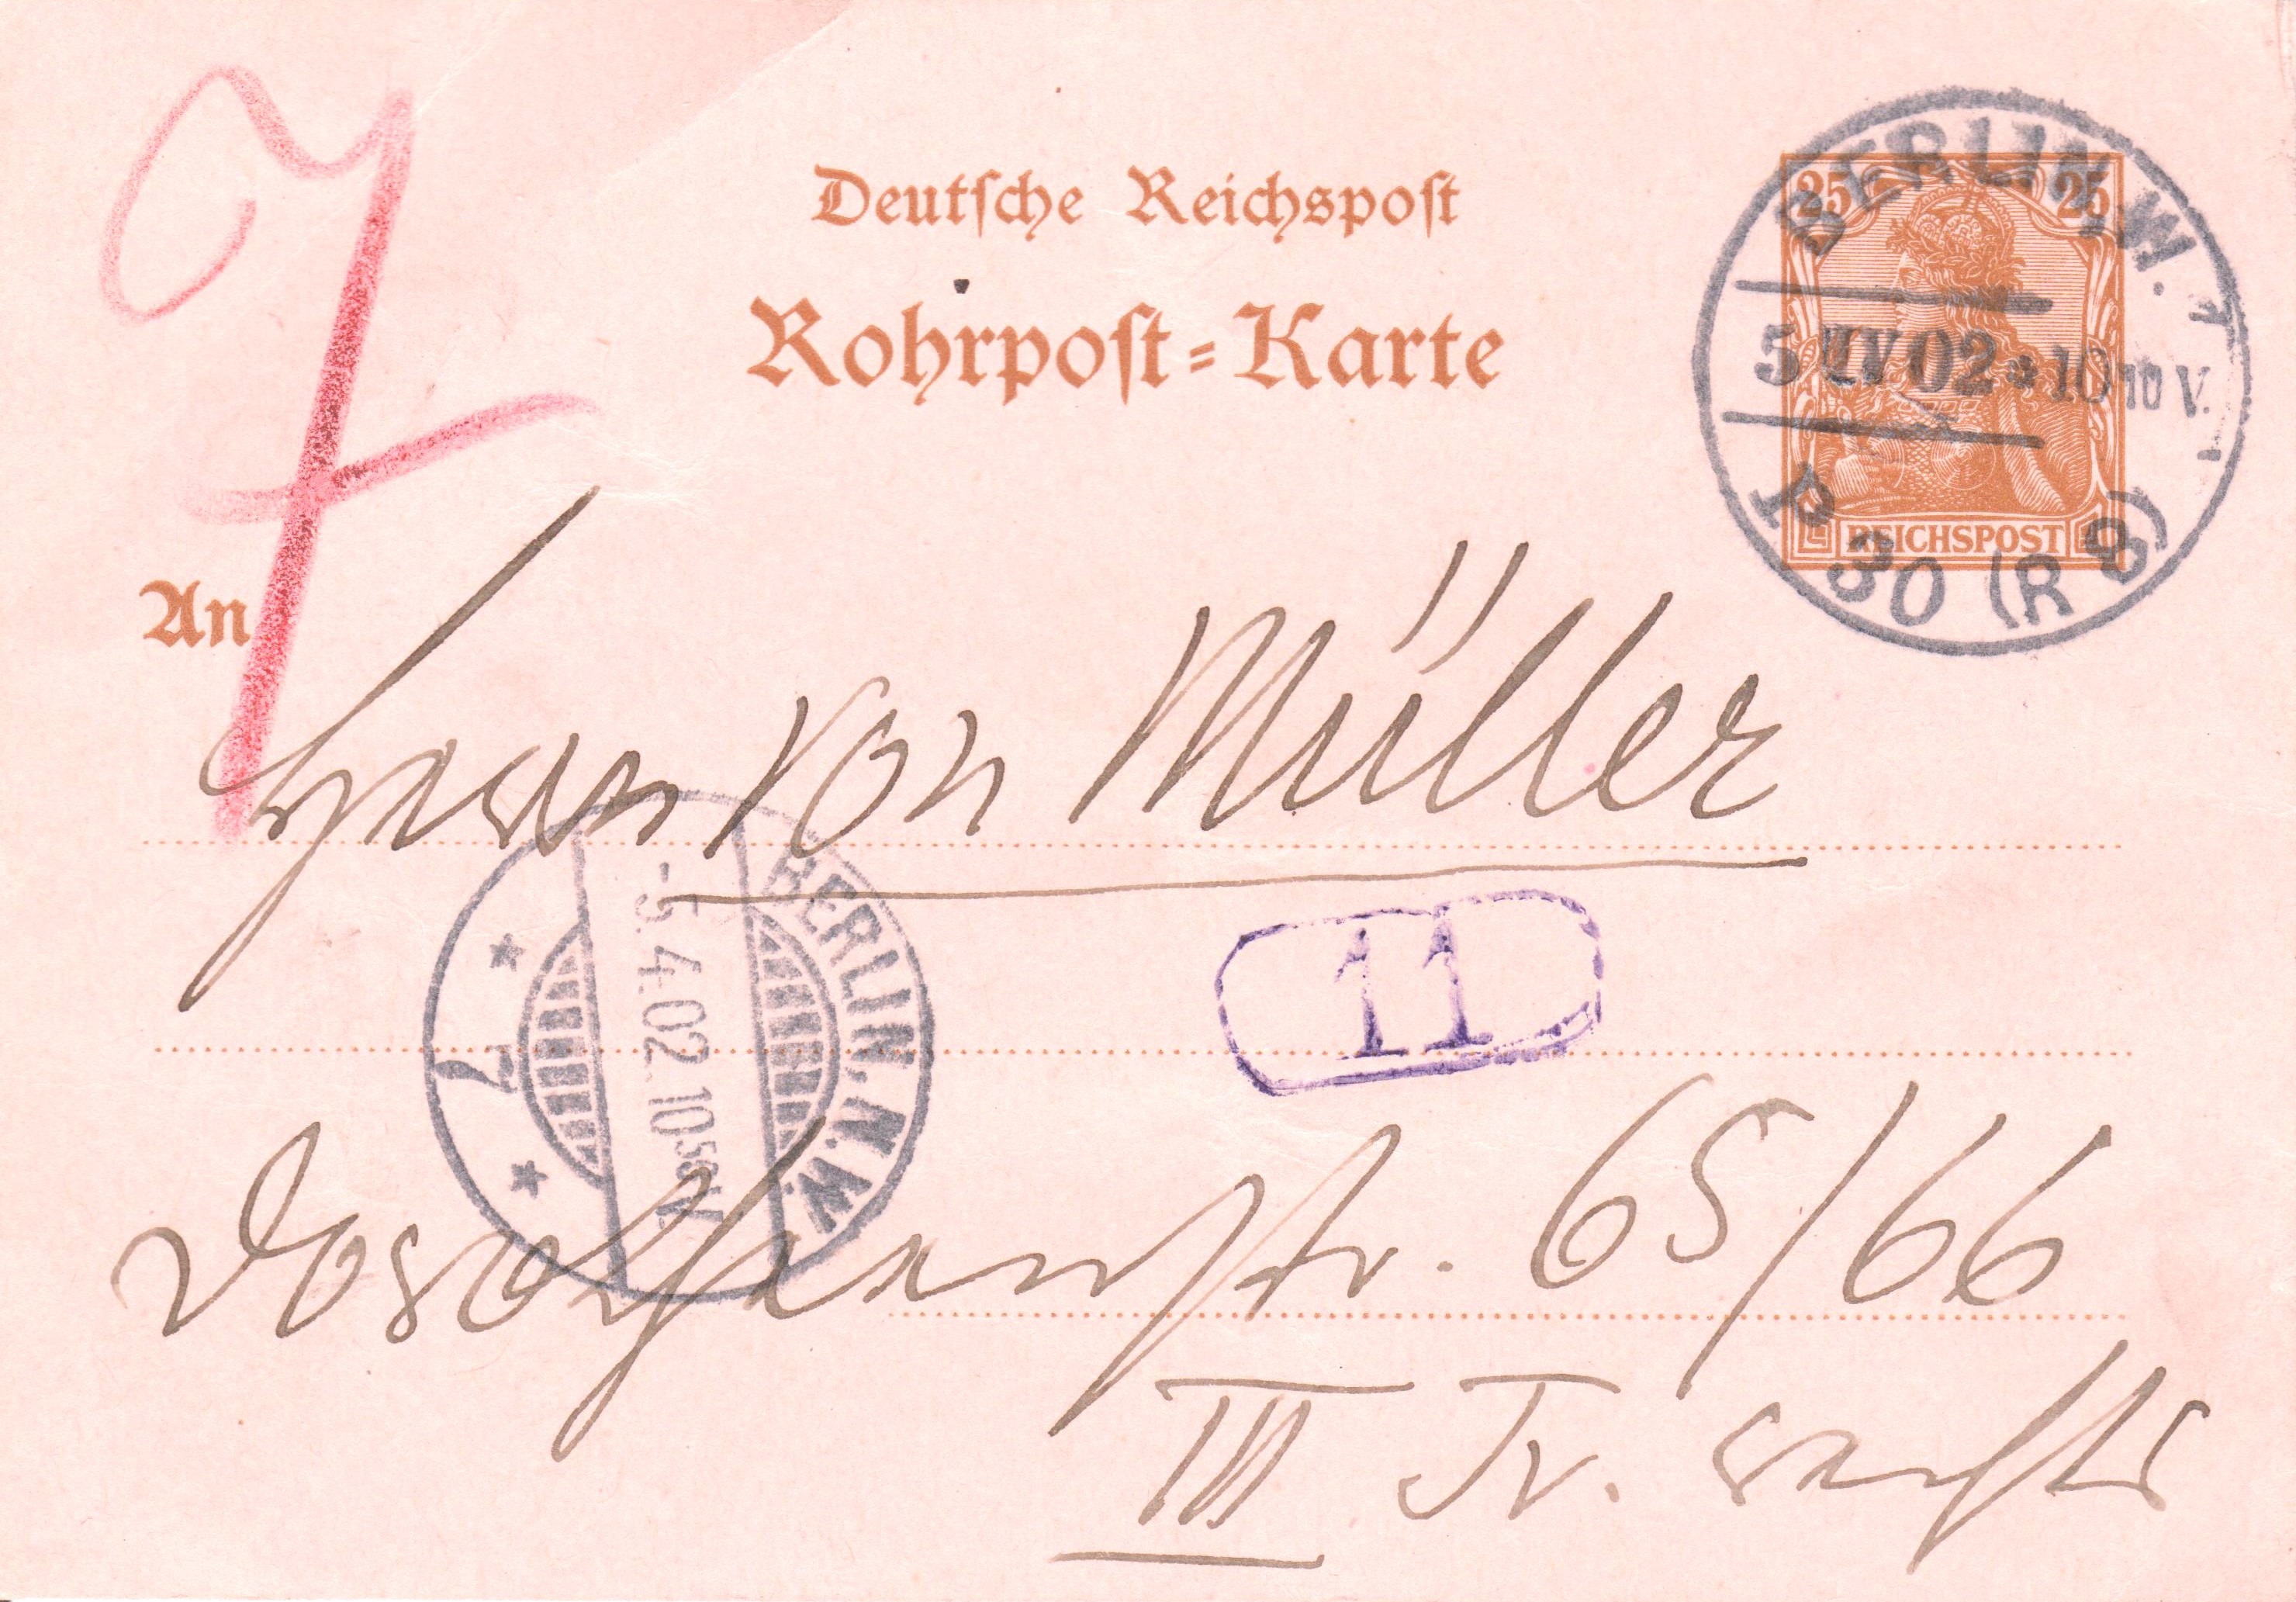 Deutsche Reichspost
Rohrpost-Karte
25 25
REICHSPOST
BERLIN, W.
5 IV 02 10 10 V.
P 30 (R 8)
7
An
Herrn von Müller
BERLIN, N.W.
-5.4.02. 10 50 V.
7
11
Dorotheenstr. 65/66
III Tr. rechts